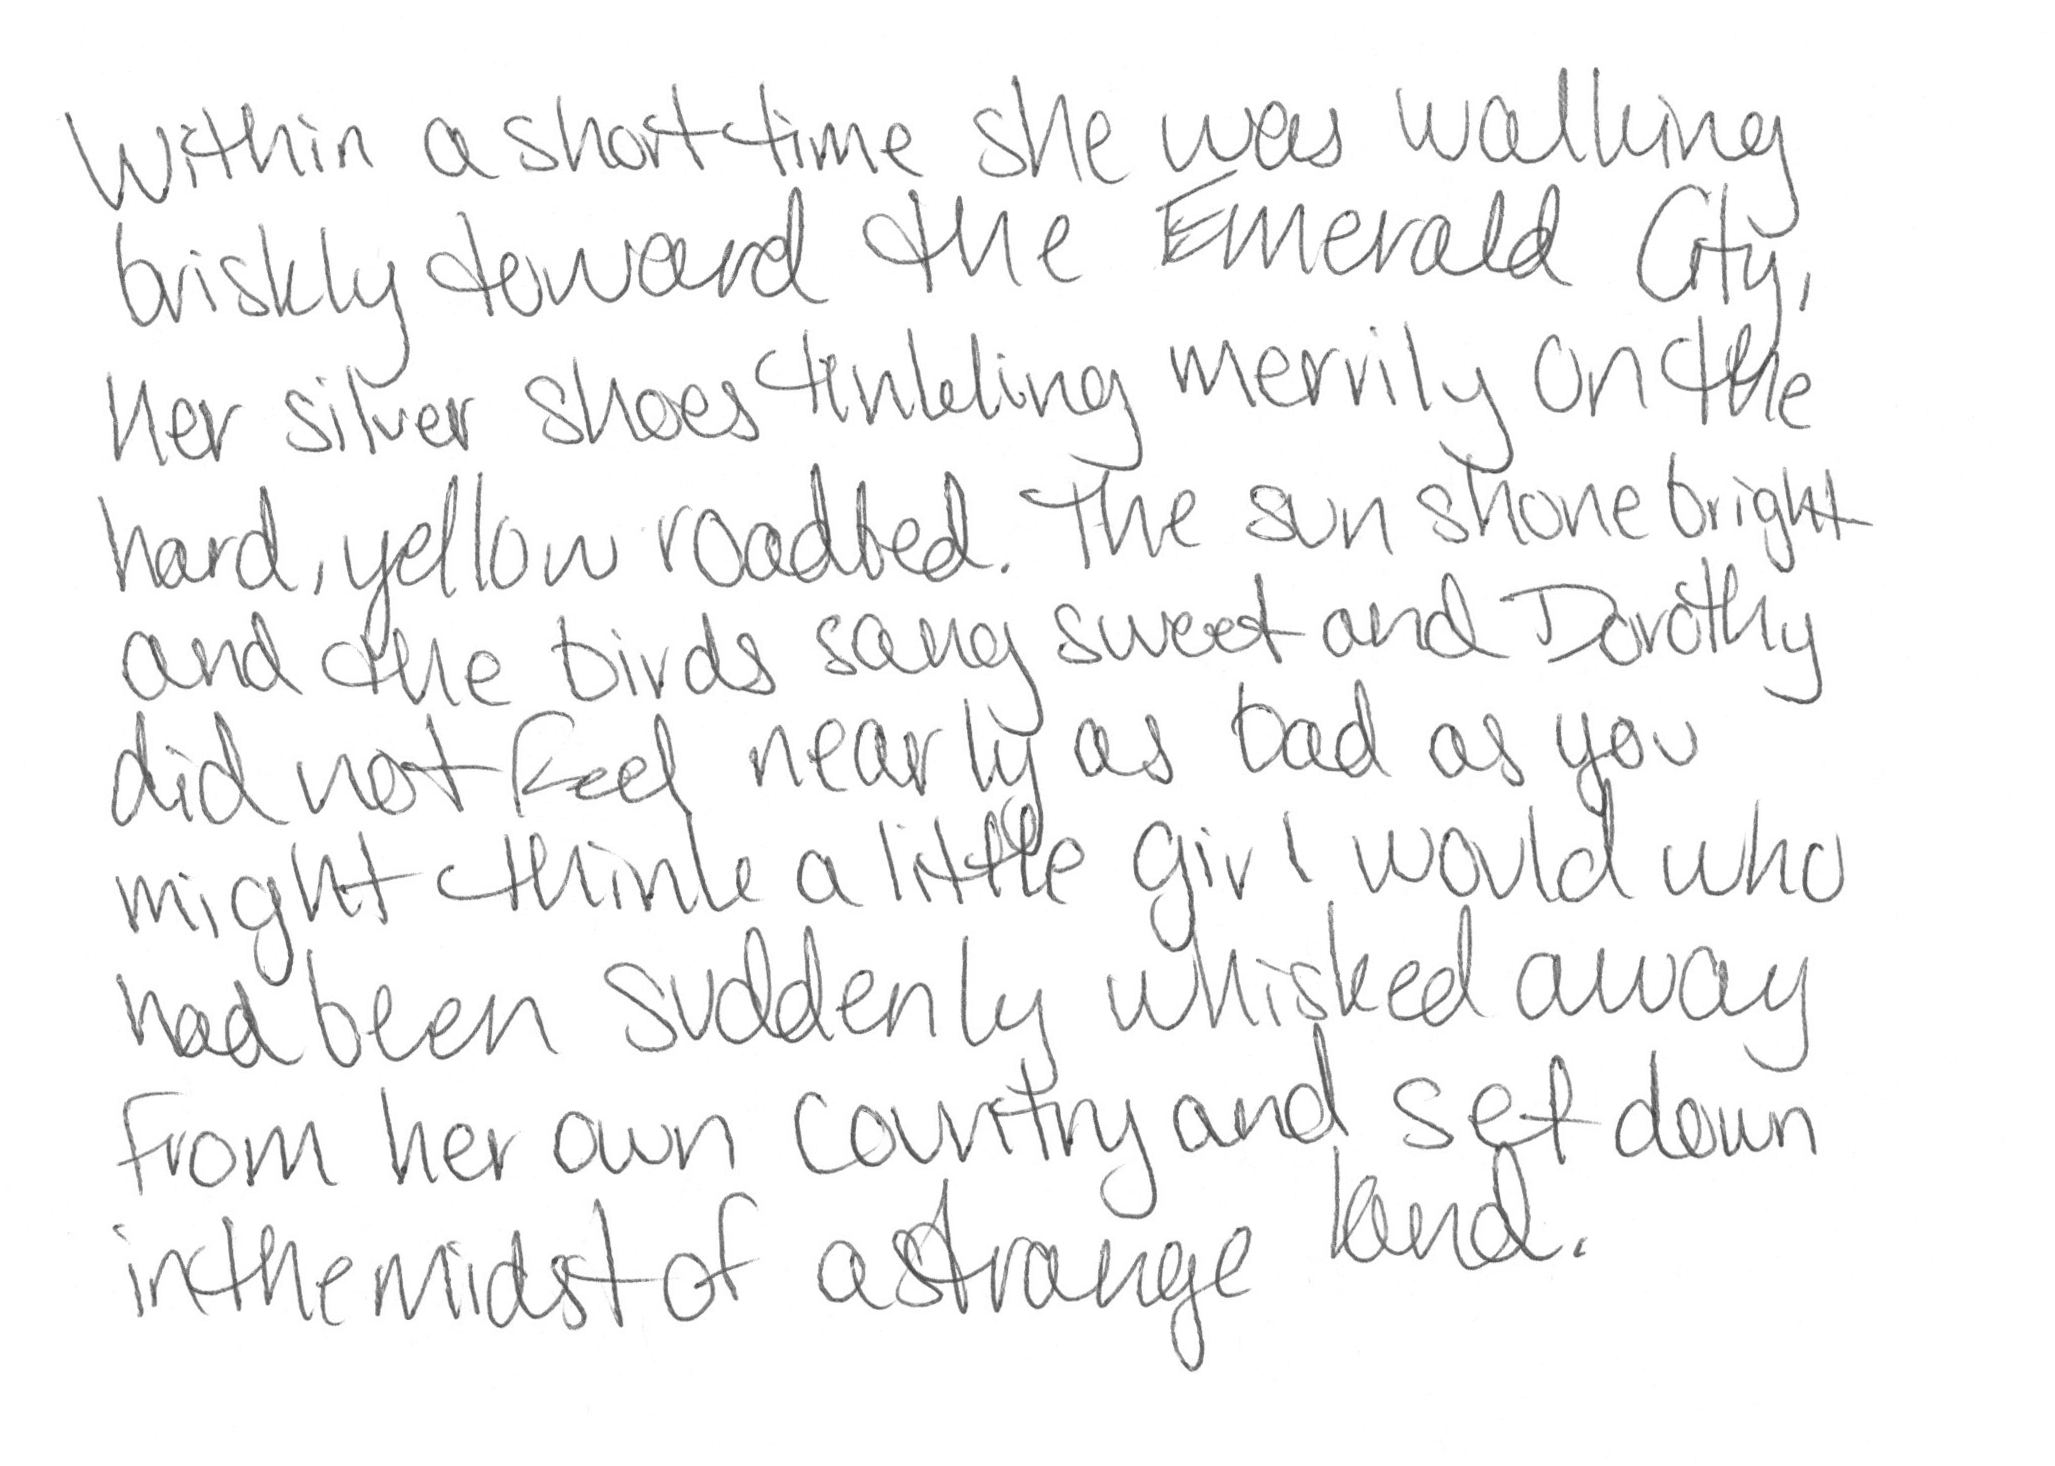 Within a short time she was walking
briskly toward the Emerald City,
her silver shoes tinkling merrily on the
hard, yellow roadbed. The sun shone bright
and the birds sang sweet and Dorothy
did not feel nearly as bad as you
might think a little girl would who
had been suddenly whisked away
from her own country and set down
in the midst of a strange land.